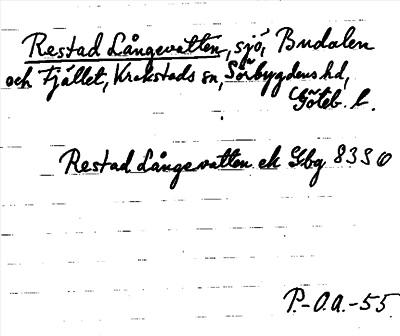 Restad Långevatten, sjö, Budalen
och Fjället, Krokstads sn, Sörbygdens hd,
Göteb. l.
Restad Långevatten ek Gbg 83 S Ö
P.-O.A.-55.